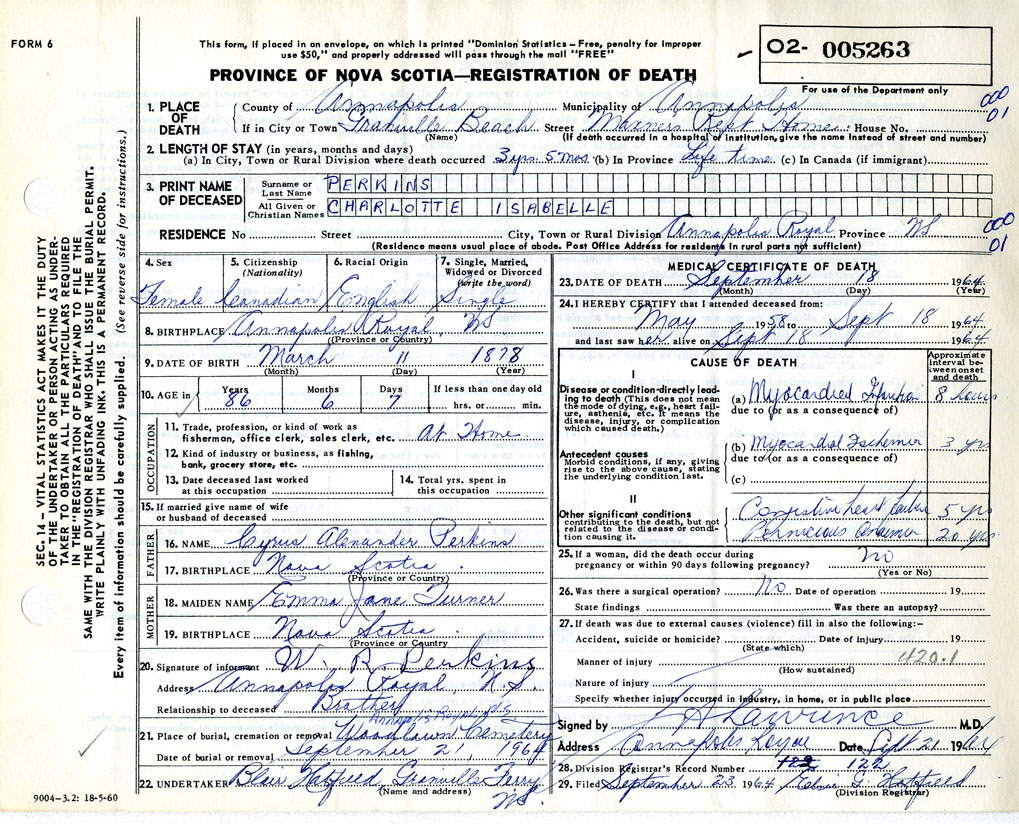 FORM 6
This form, if placed in an envelope, on which is printed "Dominion Statistics – Free, penalty for improper
use $50," and properly addressed will pass through the mail "FREE"
PROVINCE OF NOVA SCOTIA—REGISTRATION OF DEATH
O2- 005263
For use of the Department only
000
01
1. PLACE OF DEATH
County of Annapolis Municipality of Annapolis
If in City or Town Granville Beach Street Mariners Rest Home House No.
(Name) (If death occurred in a hospital or institution, give the name instead of street and number)
2. LENGTH OF STAY (in years, months and days)
(a) In City, Town or Rural Division where death occurred 3 yrs. 5 mos (b) In Province Life time (c) In Canada (if immigrant)
3. PRINT NAME OF DECEASED
Surname or Last Name PERKINS
All Given or Christian Names CHARLOTTE ISABELLE
RESIDENCE No Street City, Town or Rural Division Annapolis Royal Province NS
(Residence means usual place of abode. Post Office Address for residents in rural parts not sufficient)
000
01
4. Sex Female
5. Citizenship (Nationality) Canadian
6. Racial Origin English
7. Single, Married, Widowed or Divorced (write the word) Single
8. BIRTHPLACE Annapolis Royal, NS
(Province or Country)
9. DATE OF BIRTH March 11 1878
(Month) (Day) (Year)
10. AGE in Years 86 Months 6 Days 7 If less than one day old hrs. or min.
OCCUPATION
11. Trade, profession, or kind of work as
fisherman, office clerk, sales clerk, etc. At Home
12. Kind of industry or business, as fishing,
bank, grocery store, etc.
13. Date deceased last worked at this occupation
14. Total yrs. spent in this occupation
15. If married give name of wife
or husband of deceased
FATHER
16. NAME Cyrus Alexander Perkins
17. BIRTHPLACE Nova Scotia
(Province or Country)
MOTHER
18. MAIDEN NAME Emma Jane Turner
19. BIRTHPLACE Nova Scotia
(Province or Country
20. Signature of informant W. R. Perkins
Address Annapolis Royal, N.S.
Relationship to deceased Brother
Annapolis Royal, N.S
21. Place of burial, cremation or removal Woodlawn Cemetery
Date of burial or removal September 21, 1964
22. UNDERTAKER Blair Hatfield, Granville Ferry
(Name and address) NS.
9004–3.2: 18-5-60
MEDICAL CERTIFICATE OF DEATH
23. DATE OF DEATH September 18 1964
(Month) (Day) (Year)
24. I HEREBY CERTIFY that I attended deceased from:
May 1958 to Sept 18 1964
and last saw her alive on Sept 18 1964
CAUSE OF DEATH
Approximate interval between onset and death
I
Disease or condition directly leading to death (This does not mean the mode of dying, e.g., heart failure, asthenia, etc. It means the disease, injury, or complication which caused death.)
(a) Myocardial 8 hours
due to (or as a consequence of)
Antecedent causes
Morbid conditions, if any, giving rise to the above cause, stating the underlying condition last.
(b) Myocardial Ischemia 3 yrs
due to (or as a consequence of)
(c)
II
Other significant conditions
contributing to the death, but not related to the disease or condition causing it.
Congestive heart failure 5 yrs
Pernicious anaemia 20 yrs
25. If a woman, did the death occur during
pregnancy or within 90 days following pregnancy? No
(Yes or No)
26. Was there a surgical operation? No Date of operation 19
State findings Was there an autopsy?
27. If death was due to external causes (violence) fill in also the following:–
Accident, suicide or homicide? Date of injury 19
(State which)
Manner of injury 420.1
(How sustained)
Nature of injury
Specify whether injury occurred in industry, in home, or in public place
Signed by Lawrence M.D.
Address Annapolis Royal Date Sept 21 1964
28. Division Registrar's Record Number 122 122
29. Filed September 23 1964 G. Hatfield
(Division Registrar)
SEC. 14 – VITAL STATISTICS ACT MAKES IT THE DUTY
OF THE UNDERTAKER OR PERSON ACTING AS UNDER-
TAKER TO OBTAIN ALL THE PARTICULARS REQUIRED
IN THE "REGISTRATION OF DEATH" AND TO FILE THE
SAME WITH THE DIVISION REGISTRAR WHO SHALL ISSUE THE BURIAL PERMIT.
WRITE PLAINLY WITH UNFADING INK. THIS IS A PERMANENT RECORD.
Every item of information should be carefully supplied. (See reverse side for instructions.)